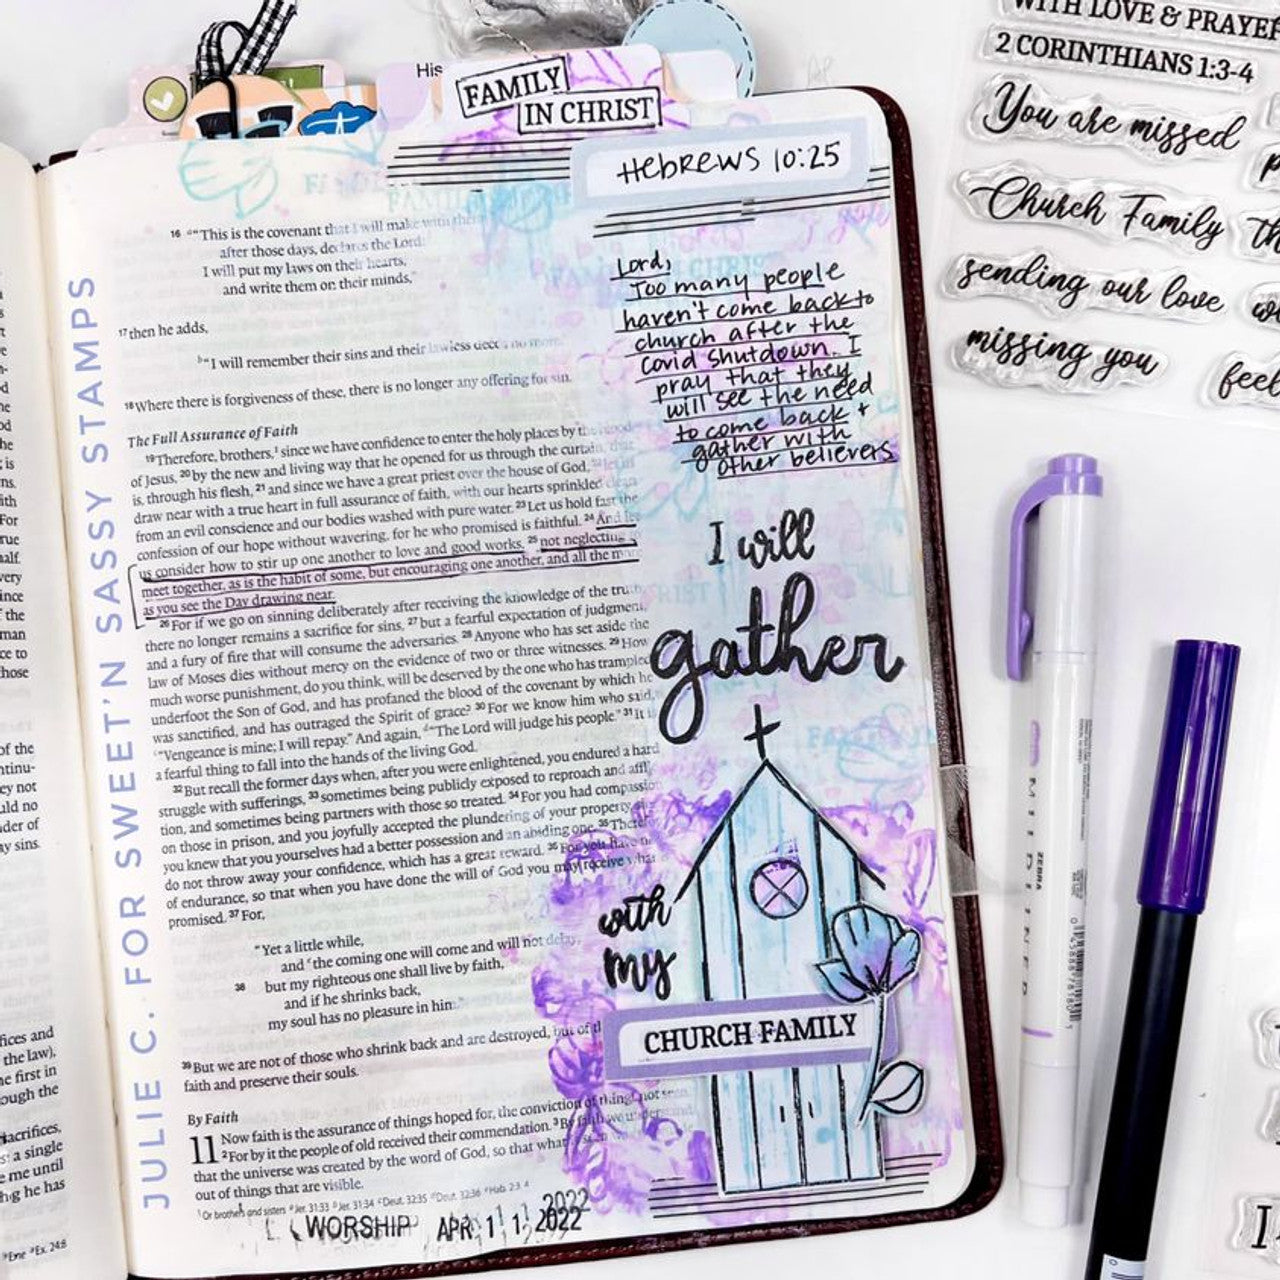 WITH LOVE &
2 CORINTHIANS 1:3-4
You are missed
Church Family
sending our love
missing you
His
FAMILY
IN CHRIST
Hebrews 10:25
16 "This is the covenant that I will make with them
after those days, declares the Lord:
I will put my laws on their hearts,
and write them on their minds,"
17 then he adds,
"I will remember their sins and their lawless deeds no more."
18 Where there is forgiveness of these, there is no longer any offering for sin.
The Full Assurance of Faith
19 Therefore, brothers, since we have confidence to enter the holy places by the blood
of Jesus, 20 by the new and living way that he opened for us through the curtain, that
is, through his flesh, 21 and since we have a great priest over the house of God, 22 let us
draw near with a true heart in full assurance of faith, with our hearts sprinkled clean
from an evil conscience and our bodies washed with pure water. 23 Let us hold fast the
confession of our hope without wavering, for he who promised is faithful. 24 And let
us consider how to stir up one another to love and good works, 25 not neglecting to
meet together, as is the habit of some, but encouraging one another, and all the more
as you see the Day drawing near.
26 For if we go on sinning deliberately after receiving the knowledge of the truth,
there no longer remains a sacrifice for sins, 27 but a fearful expectation of judgment,
and a fury of fire that will consume the adversaries. 28 Anyone who has set aside the
law of Moses dies without mercy on the evidence of two or three witnesses. 29 How
much worse punishment, do you think, will be deserved by the one who has trampled
underfoot the Son of God, and has profaned the blood of the covenant by which he
was sanctified, and has outraged the Spirit of grace? 30 For we know him who said,
"Vengeance is mine; I will repay." And again, "The Lord will judge his people." 31 It is
a fearful thing to fall into the hands of the living God.
32 But recall the former days when, after you were enlightened, you endured a hard
struggle with sufferings, 33 sometimes being publicly exposed to reproach and afflic-
tion, and sometimes being partners with those so treated. 34 For you had compassion
on those in prison, and you joyfully accepted the plundering of your property,
you knew that you yourselves had a better possession and an abiding one. 35 Therefore
do not throw away your confidence, which has a great reward. 36 For you have need
of endurance, so that when you have done the will of God you may receive what is
promised. 37 For,
"Yet a little while,
and the coming one will come and will not delay;
38 but my righteous one shall live by faith,
and if he shrinks back,
my soul has no pleasure in him."
39 But we are not of those who shrink back and are destroyed, but of
faith and preserve their souls.
By Faith
11 Now faith is the assurance of things hoped for, the conviction of things not seen.
2 For by it the people of old received their commendation. 3 By faith we understand
that the universe was created by the word of God, so that what
out of things that are visible.
Or brothers and sisters
WORSHIP APR 11 2022
Lord,
Too many people
haven't come back to
church after the
Covid shutdown. I
pray that they
will see the need
to come back +
gather with
other believers
I will
gather
with
my
CHURCH FAMILY
JULIE C. FOR SWEET'N SASSY STAMPS
MILDLINER
ZEBRA